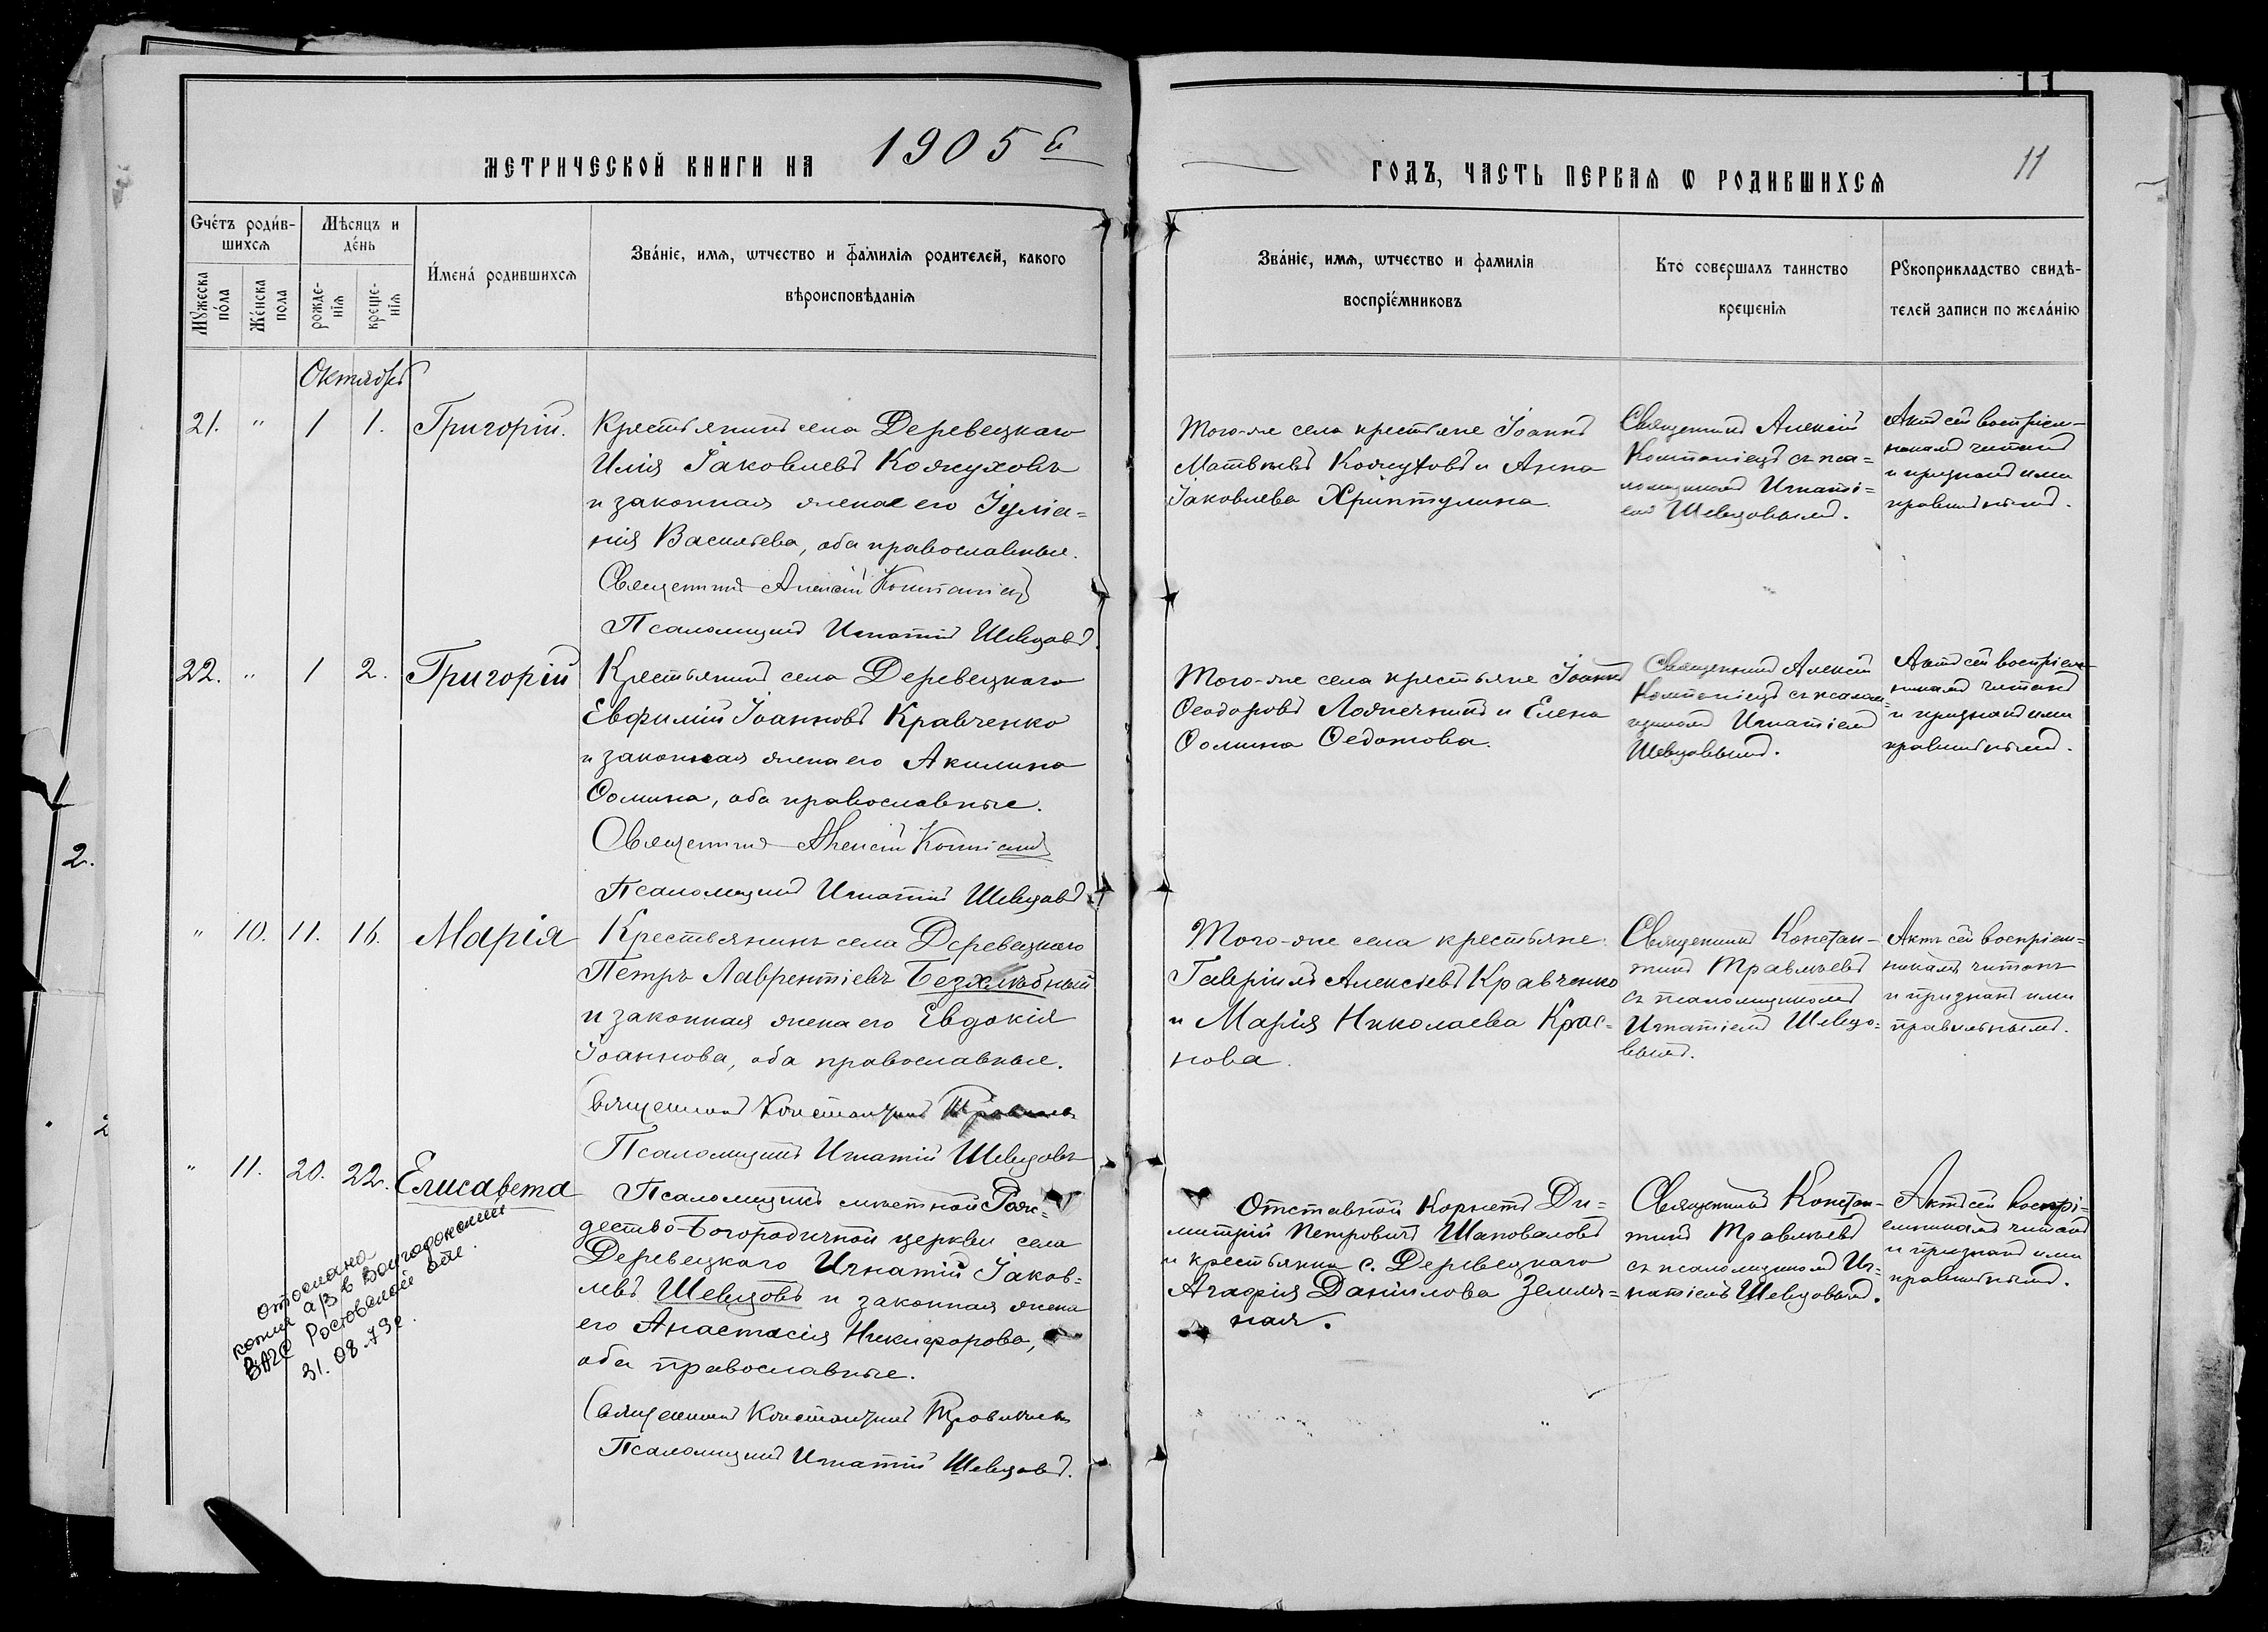 МЕТРИЧЕСКОЙ КНИГИ НА 1905 й
ГОДЪ, ЧАСТЬ ПЕРВАѦ Ѡ РОДИВШИХСѦ
11
11
Счéтъ роди́вшихсѧ
Мѣсяцъ и дéнь
Мꙋжеска пóла
Жéнска пола
рожденіѧ
крещенія
И́мена́ родившихсѧ
Звáніе, имѧ, ѡтчество и фами́лія родителей, какого
вѣроисповѣданіѧ
Звáніе, имѧ, ѡтчество и фамилія
воспрiéмниковъ
Кто совершалъ таинство
крещеніѧ
Рꙋкоприкладство свидѣ-
телей записи по желáнію
Октябрь
21. " 1 1. Григорій.
Крестьянинъ села Деревецкаго
Илія Іаковлевъ Кожуховъ
и законная жена его Іуліа=
нія Васильева, оба православные.
Священникъ Алексій Компаніец
Псаломщикъ Игнатій Шевцовъ.
Того-же села крестьяне Іоаннъ
Матвѣевъ Кожуховъ и Анна
Іаковлева Хриптулина.
Священникъ Алексій
Компаніецъ съ пса=
ломщикомъ Игнаті=
емъ Шевцовымъ.
Актъ сей воспріем-
никамъ читанъ
и признанъ ими
правильнымъ.
22. " 1 2. Григорій
Крестьянинъ села Деревецкаго
Евфимій Іоанновъ Кравченко
и законная жена его Акилина
Ѳомина, оба православные.
Священникъ Алексій Компаніецъ
Псаломщикъ Игнатій Шевцовъ.
Того-же села крестьяне Іоаннъ
Ѳеодоровъ Ложечникъ и Елена
Ѳомина Ѳедотова.
Священникъ Алексій
Компаніецъ съ псалом=
щикомъ Игнатіемъ
Шевцовымъ.
Актъ сей воспріем-
никамъ читанъ
и признанъ ими
правильнымъ.
" 10. 11. 16. Марія
Крестьянинъ села Деревецкаго
Петръ Лаврентіевъ Безхлѣбный
и законная жена его Евдокія
Іоаннова, оба православные.
Священникъ Константинъ Травлѣевъ
Псаломщикъ Игнатій Шевцовъ
Того-же села крестьяне:
Гавріилъ Алексіевъ Кравченко
и Марія Николаева Крас=
нова.
Священникъ Констан-
тинъ Травлѣевъ
съ псаломщикомъ
Игнатіемъ Шевцо=
вымъ.
Актъ сей воспріем=
никамъ читанъ
и признанъ ими
правильнымъ.
" 11. 20. 22. Елисавета
Псаломщикъ мѣстной Рож=
дество-Богородичной церкви села
Деревецкаго Игнатій Іаков=
левъ Шевцовъ и законная жена
его Анастасія Никифорова,
оба православные.
Священникъ Константинъ Травлѣевъ
Псаломщикъ Игнатій Шевцовъ.
Отставной Корнетъ Ди=
митрій Петровичъ Шаповаловъ
и крестьянка с. Деревецкаго
Агафія Даніилова Земля=
ная.
Священникъ Констан-
тинъ Травлѣевъ
съ псаломщикомъ Иг=
натіемъ Шевцовымъ.
Актъ сей воспрі=
емникамъ читанъ
и признанъ ими
правильнымъ.
отослана
копия а/з в Волгодонский
ЗАГС Ростовской обл.
31.08.79г.
2.
2